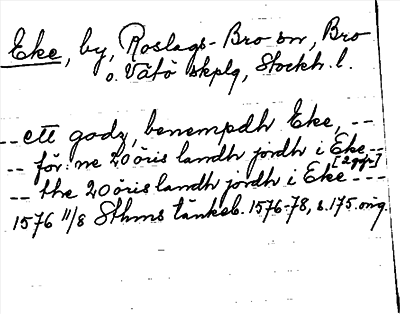 Eke, by, Roslags-Bro sn, Bro
o. Vätö skplg, Stockh. l.
-- ett godz, benempdh Eke, --
-- för:ne 20 öris landh jordh i Eke --
[2 ggr]
-- the 20 öris landh jordh i Eke ---
1576 11/8 Sthms tänkeb. 1576-78, s. 175. orig.